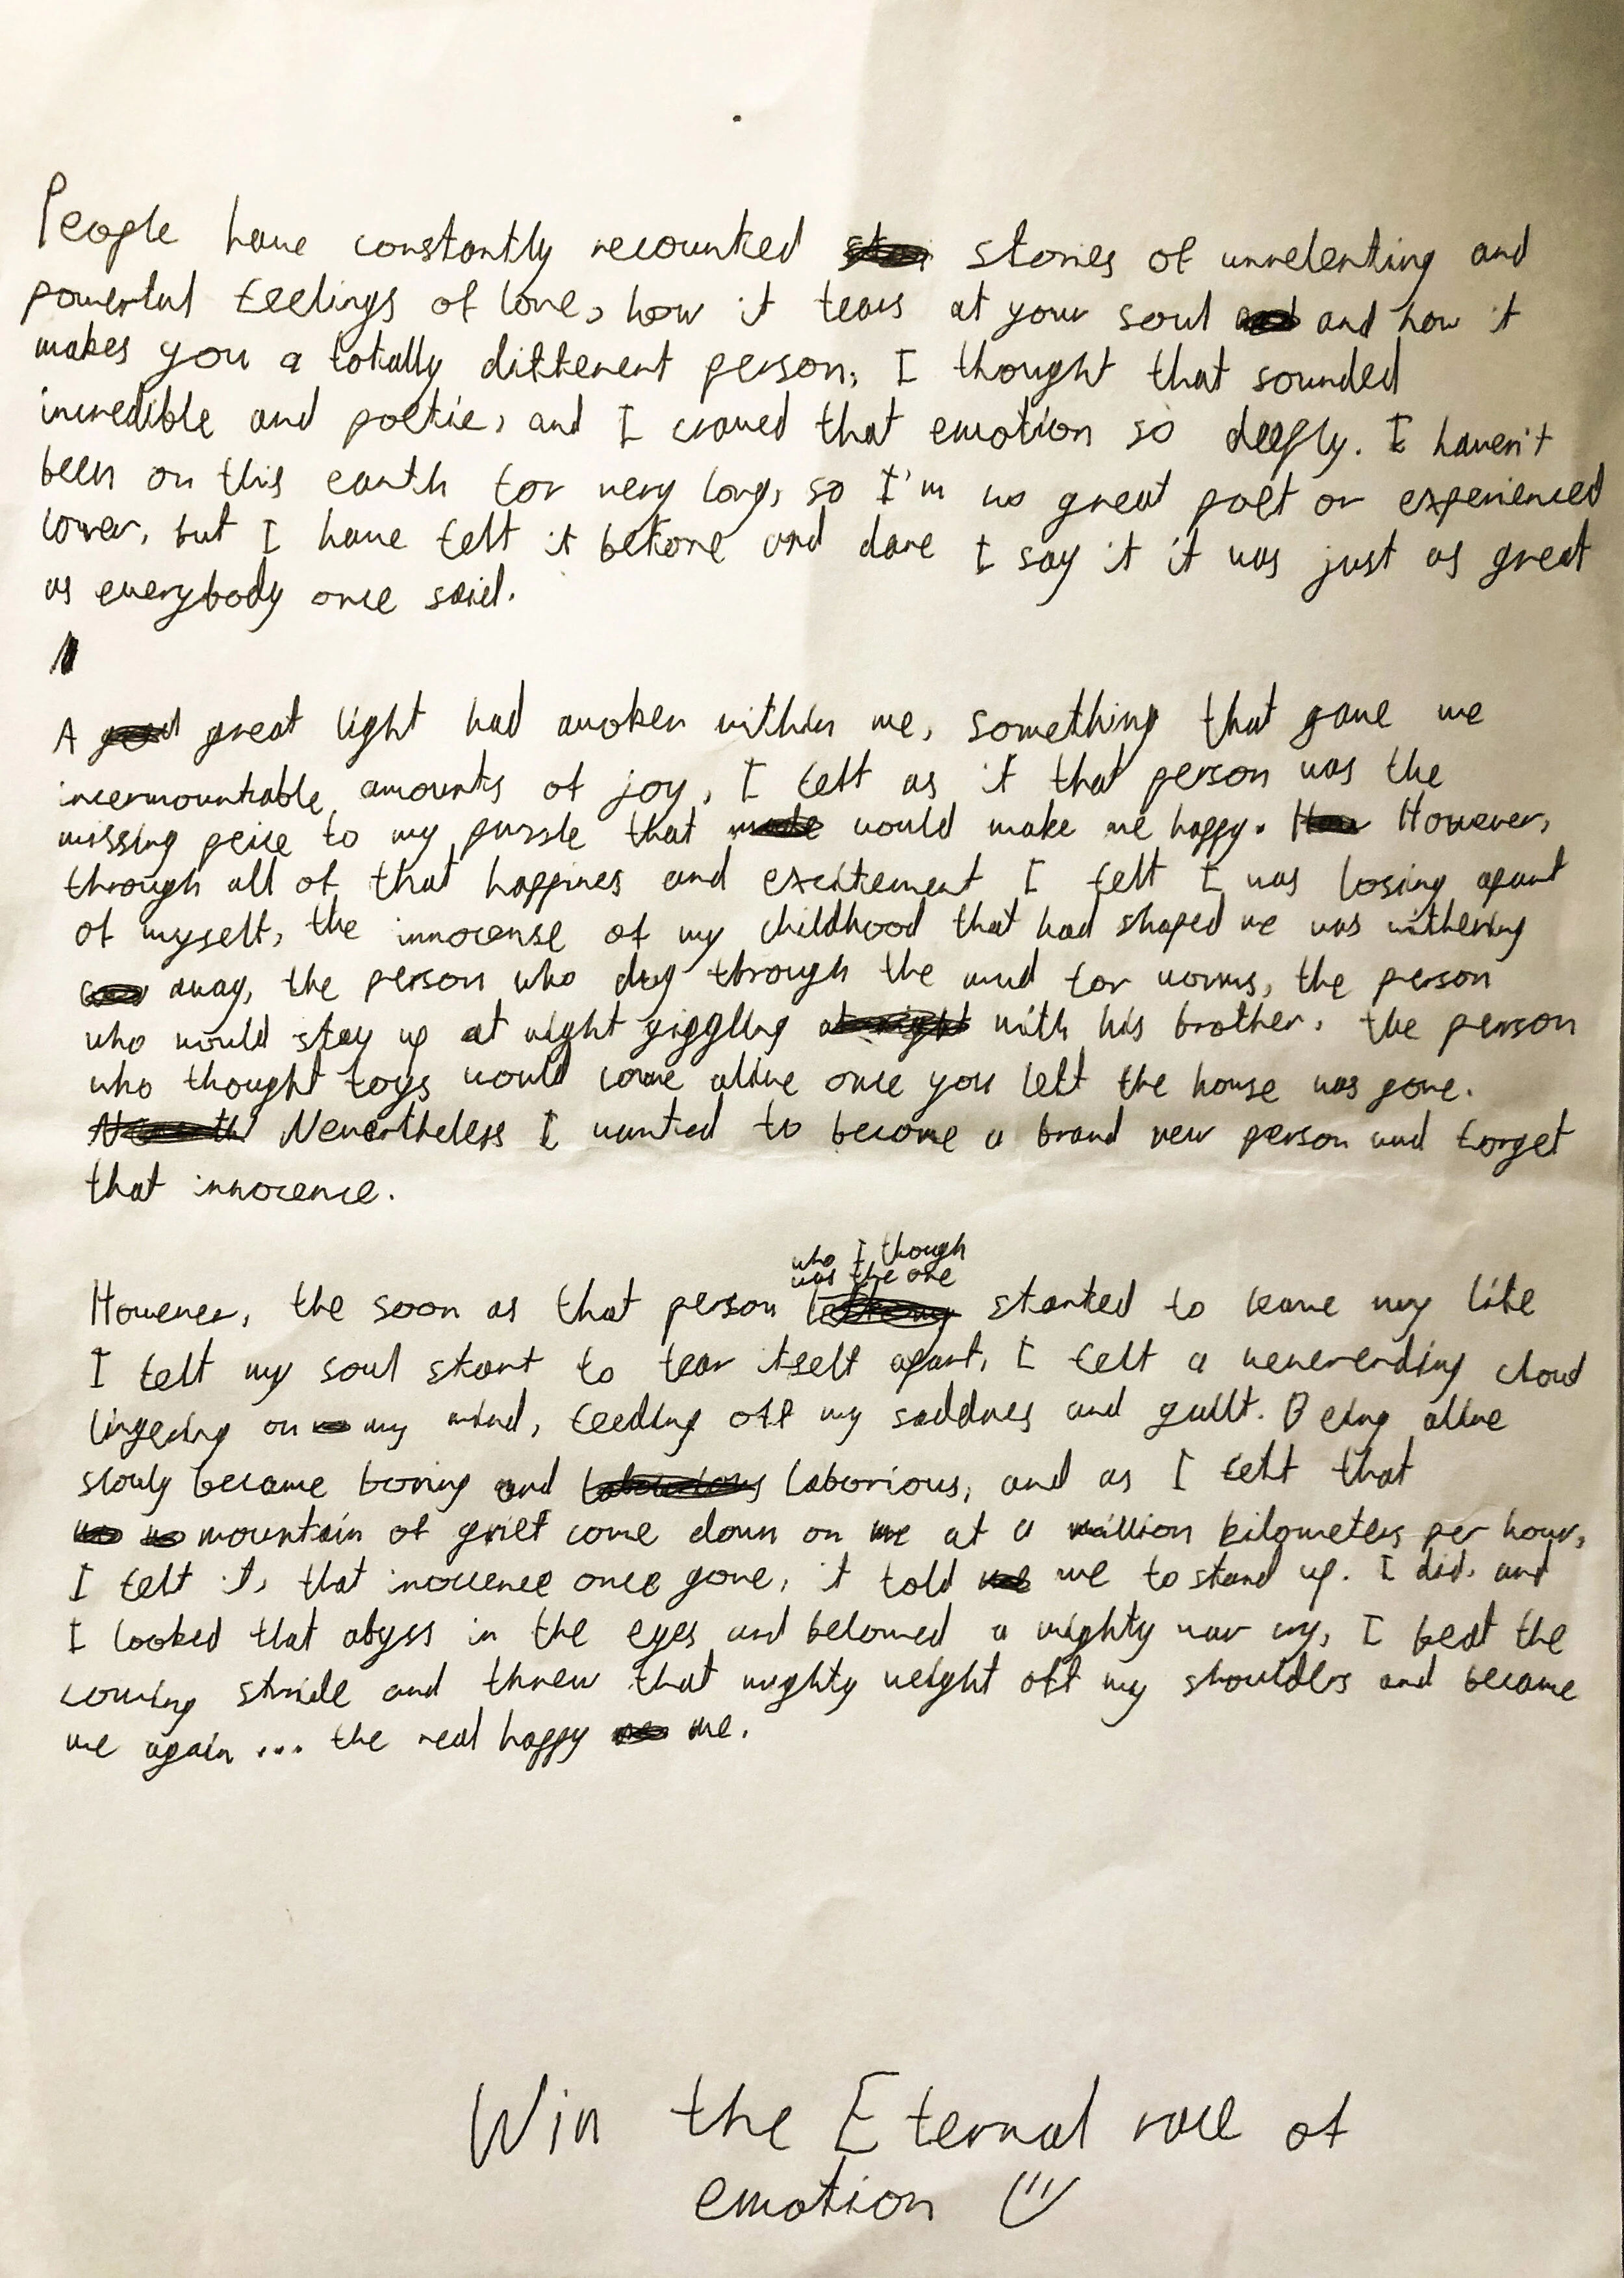 People have constantly recounted stories of unrelenting and
powerful feelings of love, how it tears at your soul and how it
makes you a totally different person, I thought that sounded
incredible and poetic, and I craved that emotion so deeply. I haven't
been on this earth for very long, so I'm no great poet or experienced
lover, but I have felt it before and dare I say it it was just as great
as everybody once said.
A great light had awoken within me, something that gave me
incermountable amounts of joy, I felt as if that person was the
missing peice to my puzzle that would make me happy. However,
through all of that happines and excitement I felt I was losing apart
of myself, the innocense of my childhood that had shaped me was withering
away, the person who dug through the mud for worms, the person
who would stay up at night giggling with his brother, the person
who thought toys would come alive once you left the house was gone.
Nevertheless I wanted to become a brand new person and forget
that innocence.
who I though
was the one
However, the soon as that person started to leave my life
I felt my soul start to tear itself apart, I felt a neverending cloud
lingering on my mind, feeding off my saddnes and guilt. Being alive
slowly became boring and laborious, and as I felt that
mountain of grief come down on me at a million kilometers per hour,
I felt it, that inocence once gone, it told me to stand up. I did, and
I looked that abyss in the eyes and belowed a mighty war cry, I beat the
coming stride and threw that mighty weight off my shoulders and became
me again... the real happy me.
Win the Eternal race of
emotion